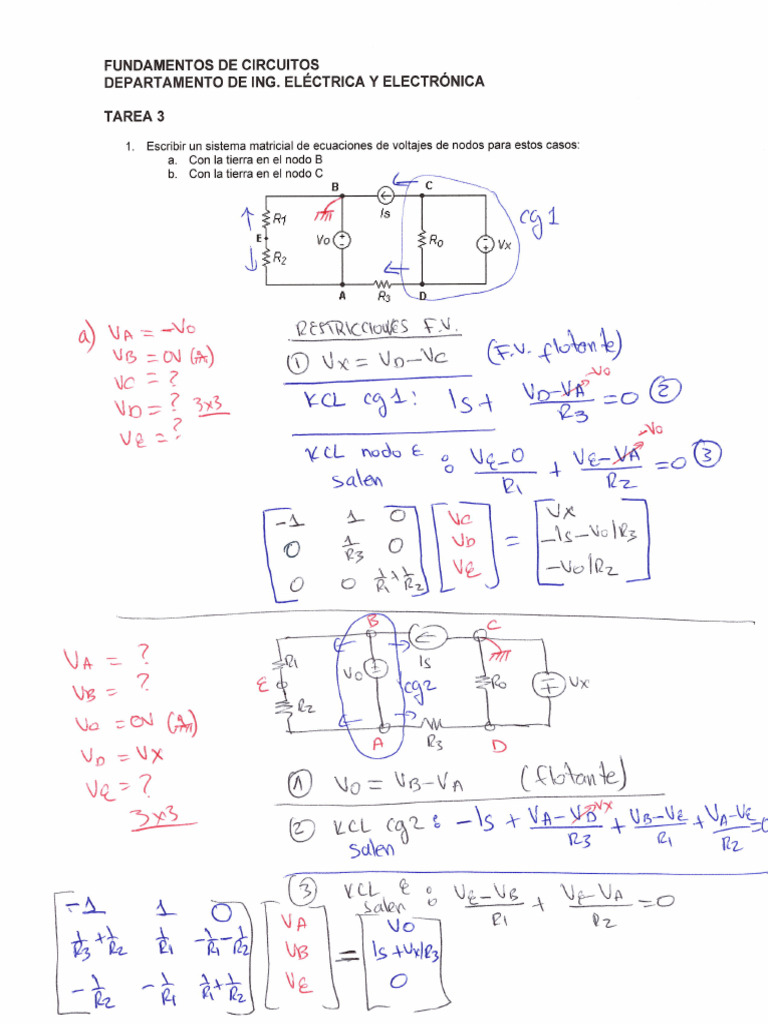 FUNDAMENTOS DE CIRCUITOS
DEPARTAMENTO DE ING. ELÉCTRICA Y ELECTRÓNICA
TAREA 3
1. Escribir un sistema matricial de ecuaciones de voltajes de nodos para estos casos:
a. Con la tierra en el nodo B
b. Con la tierra en el nodo C
B C
Is
R1 E R2 Vo + - Ro - + Vx cg1
A R3 D
a) VA = -Vo
VB = 0V
VC = ?
VD = ? 3x3
VE = ?
RESTRICCIONES F.V.
① Vx = VD - VC (F.V. flotante)
KCL cg1: Is + (VD - VA)/R3 = 0 ② -Vo
KCL nodo E salen : (VE - 0)/R1 + (VE - VA)/R2 = 0 ③ -Vo
-1 1 0 VC = Vx
0 1/R3 0 VD -Is - Vo/R3
0 0 1/R1 + 1/R2 VE -Vo/R2
B C
Is
R1 E R2 Vo cg2 Ro Vx
A R3 D
VA = ?
VB = ?
Vo = 0V
VD = Vx
VE = ?
3x3
① Vo = VB - VA (flotante)
② KCL cg2 : -Is + (VA - VD)/R3 + (VB - VE)/R1 + (VA - VE)/R2 = 0 Vx
salen
③ KCL E : (VE - VB)/R1 + (VE - VA)/R2 = 0
salen
-1 1 0 VA = Vo
1/R3 + 1/R2 1/R1 -1/R1 - 1/R2 VB Is + Vx/R3
-1/R2 -1/R1 1/R1 + 1/R2 VE 0